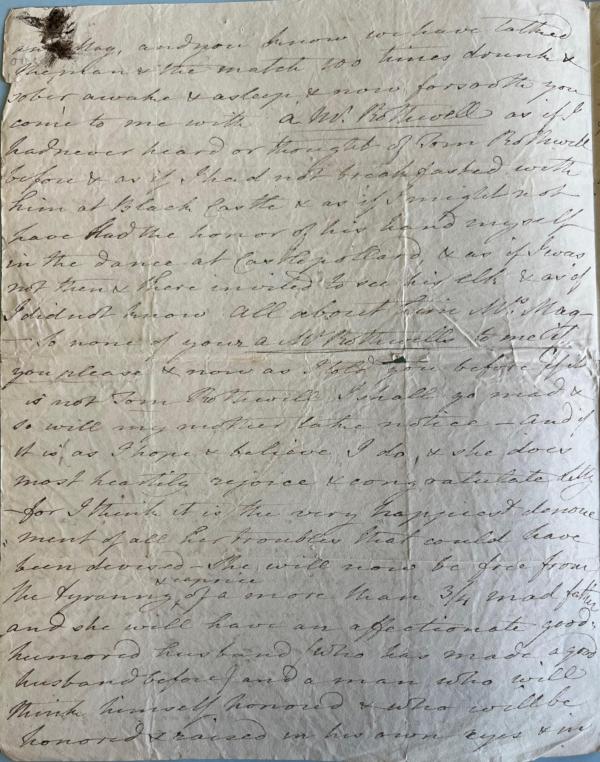 and Mag, and you know we have talked
the man & the match 100 times drunk &
sober awake & asleep & now forsooth you
come to me with a Mr. Rothwell as if I
had never heard or thought of Tom Rothwell
before & as if I had not breakfasted with
him at Black Castle & as if I might not
have had the honor of his hand myself
in the dance at Castlepollard, & as if I was
not then & there invited to see his elk & as if
I did not know all about him Mrs. Mag
- So none of your a Mr Rothwells to me if
you please & now as I told you before if it
is not Tom Rothwell I shall go mad &
so will my mother take notice - and if
it is, as I hope & believe, I do, & she does
most heartily rejoice & congratulate
- for I think it is the very happiest denoue
"ment of all her troubles that could have
been devised - She will now be free from
the tyranny & caprice of a more than 3/4 mad father
and she will have an affectionate good-
humored husband (who has made a good
husband before) and a man who will
think himself honored & who will be
honored & raised in his own eyes & in